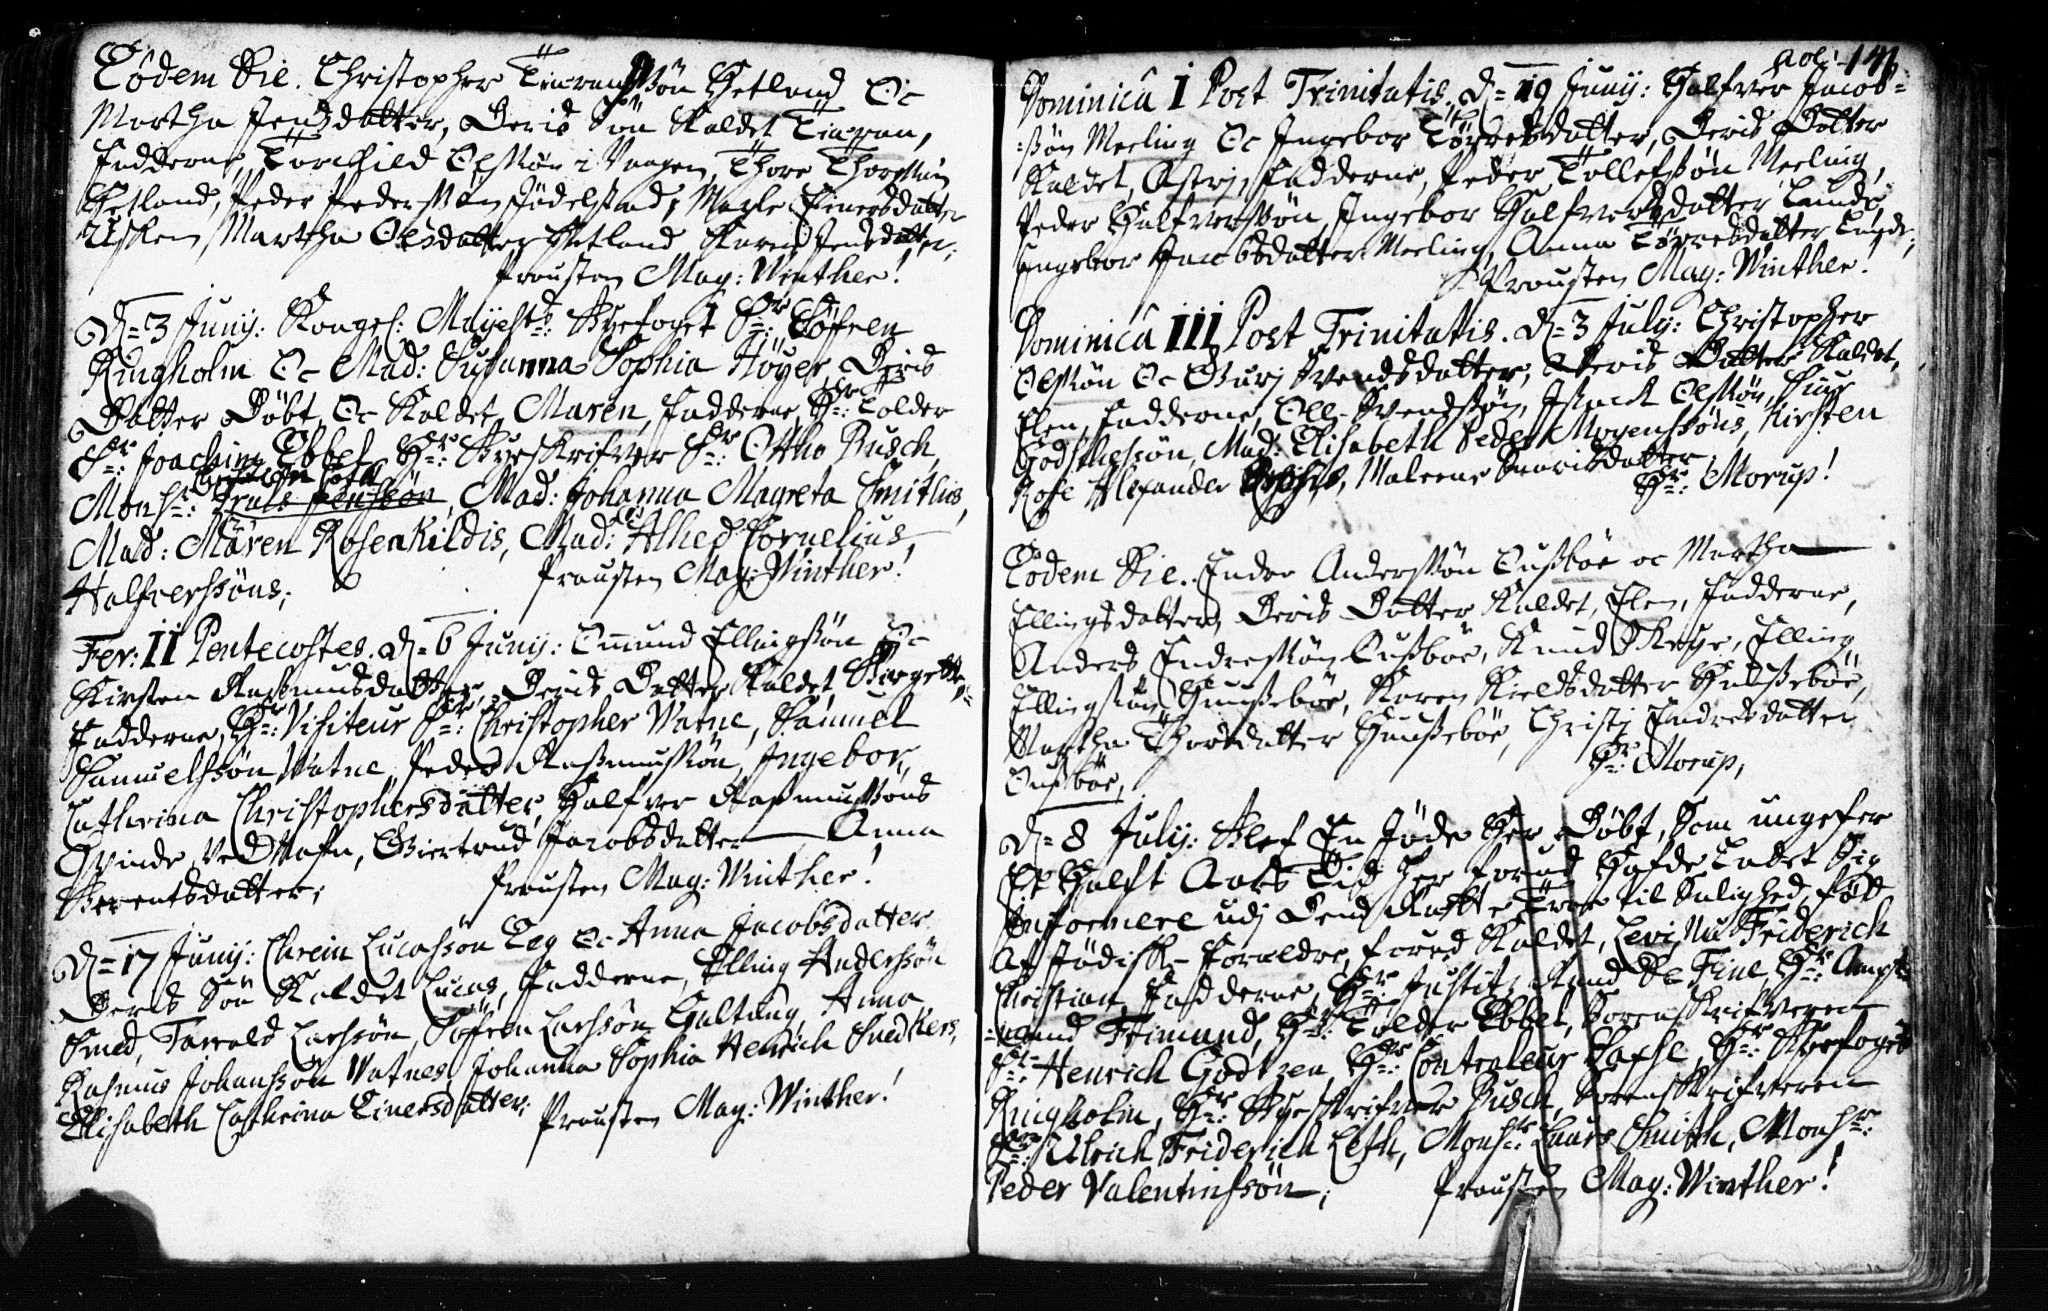 Eodem Die. Christopher Tiaranssøn Hetland Oc
Martha Jensdatter, Deris Søn Kaldet Tiaran,
Fadderne, Torchild Olssøn i Vaagen, Thore Thorssøn
Hetland, Peder Pederssøn Jødelstad, Marle Einersdatter
Usken, Martha Olsdatter Hetland Karen Jensdatter;
Prousten Mag: Winther!
D= 3 Junij: Kongel: Mayests: Byefoget Sr: Søfren
Ringholm Oc Mad: Susanna Sophia Høyer, Deris
Datter Døbt, Oc Kaldet, Maren, Fadderne, Hr: Tolder
Sr: Joachim Ebbel, Hr: Byeskrifver Sr: Ottho Busch,
Monsr: Truls Jenssøn, Mad: Johanna Magreta Smithis,
Mad: Maren Rosenkildis, Mad: Alhed Cornelius
Halfverssøns;
Prousten Mag: Winther!
Fer: II Pentecostes. D= 6 Junij: Omund Ellingssøn Oc
Kirsten Rasmusdatter, Deris Datter Kaldet, Birgette,
Fadderne, Hr: Visiteur Sr: Christopher Watne, Samuel
Samuelssøn Watne, Peder Rasmussøn, Ingebor,
Cathrina Christophersdatter, Halfver Rasmussøns
Qvinde Ved Hafn, Giertrud Jacobsdatter Anna
Berentsdatter;
Prousten Mag: Winther!
D= 17 Junij: Chrein Lucassøn Eeg Oc Anna Jacobsdatter
Deris Søn Kaldet Lucas, Fadderne, Elling Anderssøn
Smed, Tarrald Larssøn, Søfren Larssøn Galtung, Anna
Rasmus Johanssøn Vatnes, Johanna Sophia Henrich Snedkers,
Elisabeth Cathrina Einersdatter;
Prousten Mag: Winther!
Fol: 141
Dominica I Post Trinitatis. D= 19 Junij: Halfver Jacob=
=ssøn Meeling Oc Ingebor Tørresdatter, Deris Datter
Kaldet, Astrj, Fadderne, Peder Tollefssøn Meeling,
Peder Halfverssøn, Ingebor Halfversdatter Lunde
Ingebor Jacobsdatter Meeling, Anna Tørresdatter Lunde;
Prousten Mag: Winther!
Dominica III Post Trinitatis. D= 3 July: Christopher
Olssøn Oc Gurj Svendsdatter, Deris Datter Kaldet,
Elen, Fadderne, Oll Svendssøn, Olssøn,
Godskessøn, Mad: Elisabeth Peder Mogenssøns, Kirsten
Rose Alexander, Maleene Sauritsdatter,
Hr: Morup!
Eodem Die. Endre Anderssøn Ousbøe oc Martha
Ellingsdatter, Deris Datter Kaldet, Elen, Fadderne,
Anders Endressøn Ousbøe, Knud Skeye, Elling
Ellingssøn Gausebøe, Karen Kieldsdatter Gausebøe,
Martha Thorsdatter Gausebøe, Christj Endresdatter
Ousbøe,
Hr: Morup,
D= 8 July: Blef En Jøde Her Døbt, Som ungefer
Et Halft Aars Tid her forud Hafde Ladet Sig
Informere udj Dend Rette Troe til Salighed, fød
Af Jødiske Forældre, forud Kaldet, Levi, Nu Friderich
Christian, Fadderne, Hr: Justitz Raad De Fine, Hr: Ampt=
=mand Frimand, Hr: Tolder Ebbel, Sorenskrifveren
Sr: Henrich Godtzen, Hr: Contraleur, Hr: Byefoget
Ringholm, Hr: Byeskrifver Busch, Sorenskrifveren
Sr: Ulrich Friderich Leth, Monsr: Laurs Smith, Monsr:
Peder Valentinssøn;
Prousten Mag: Winther!